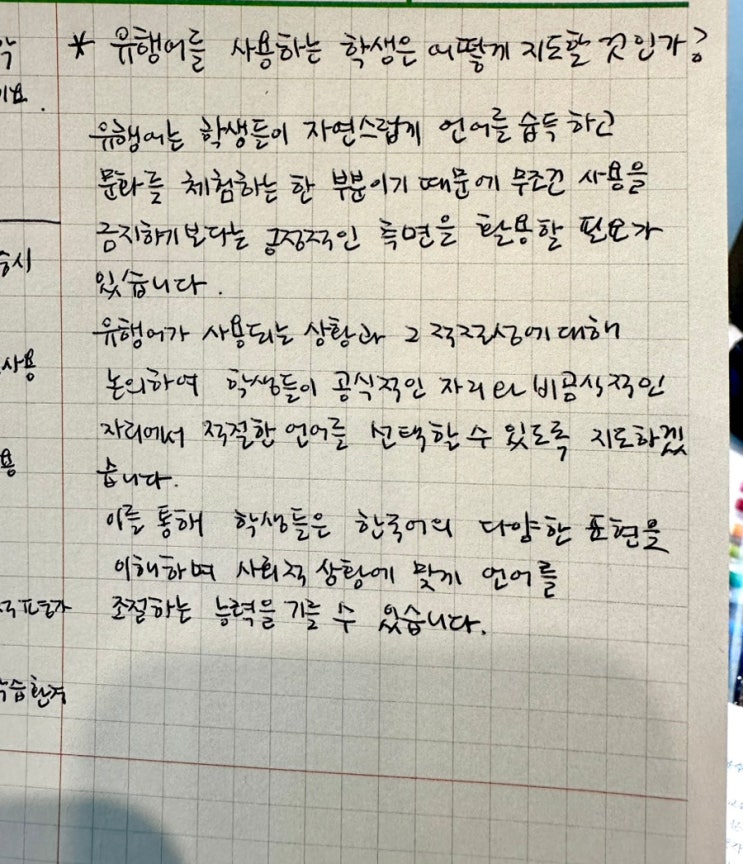 * 유행어를 사용하는 학생은 어떻게 지도할 것인가?
유행어는 학생들이 자연스럽게 언어를 습득하고
문화를 체험하는 한 부분이기 때문에 무조건 사용을
금지하기보다는 긍정적인 측면을 활용할 필요가
있습니다.
유행어가 사용되는 상황과 그 적절성에 대해
논의하여 학생들이 공식적인 자리와 비공식적인
자리에서 적절한 언어를 선택할 수 있도록 지도하겠
습니다.
이를 통해 학생들은 한국어의 다양한 표현을
이해하며 사회적 상황에 맞게 언어를
조절하는 능력을 기를 수 있습니다.
사용
용